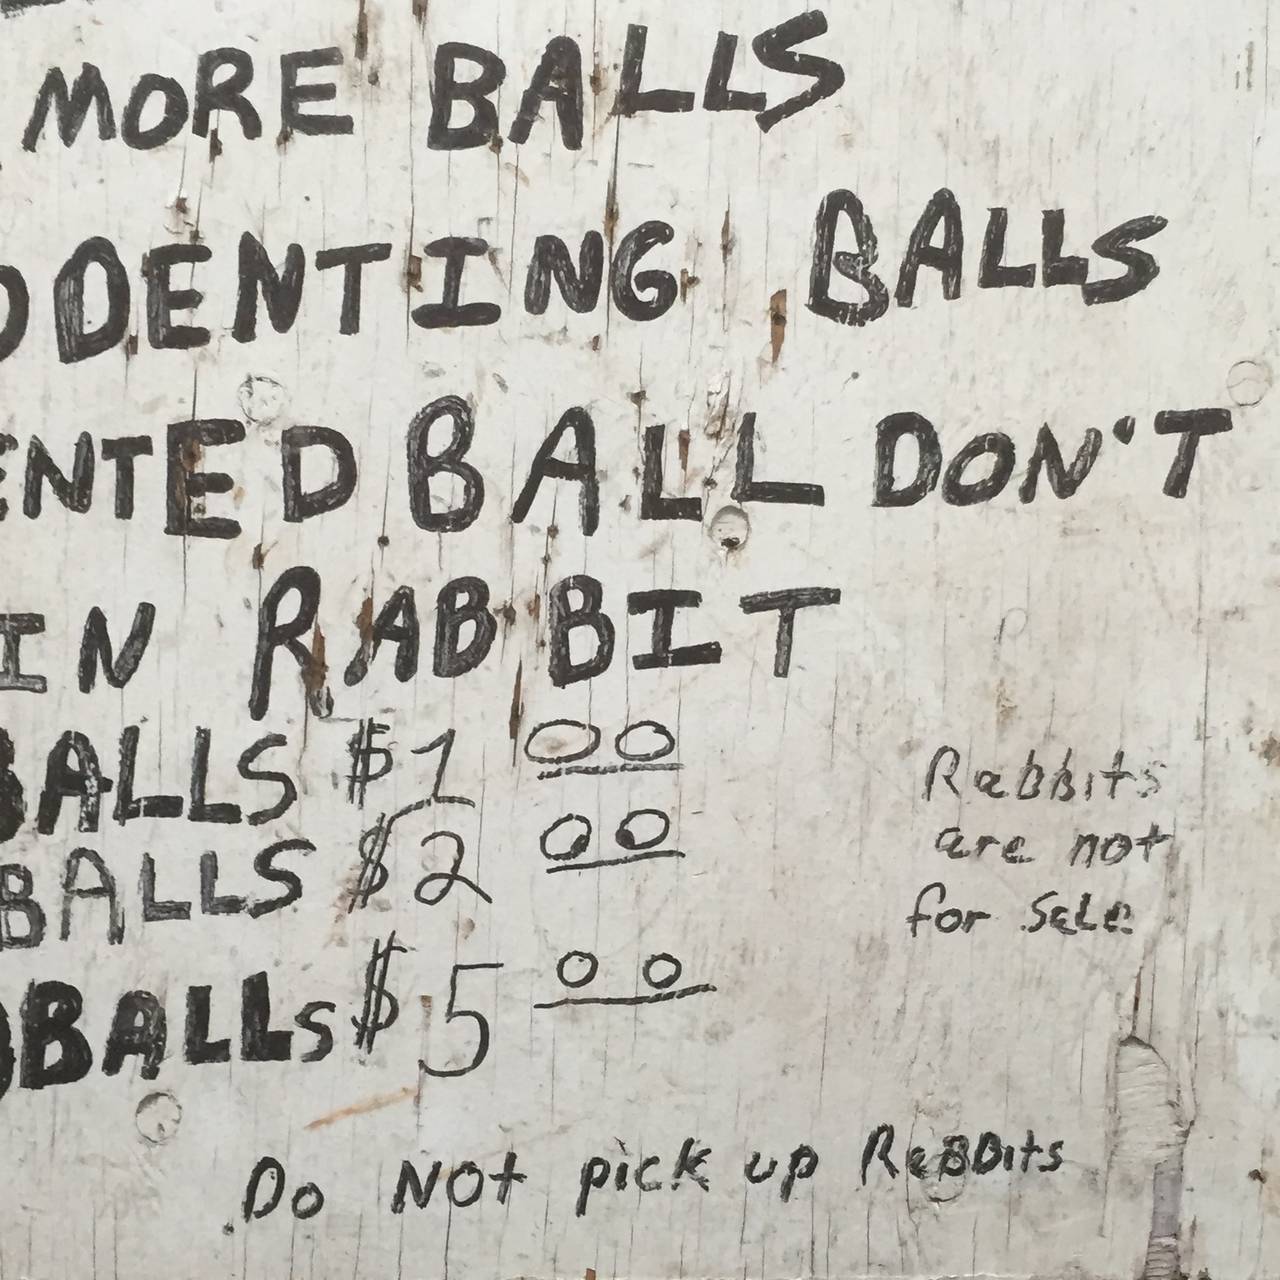 MORE BALLS
DDENTING BALLS
ENTED BALL DON'T
IN RABBIT
BALLS $1 00
BALLS $2 00
BALLS $5 00
Rabbits
are not
for sale
Do Not pick up Rabbits